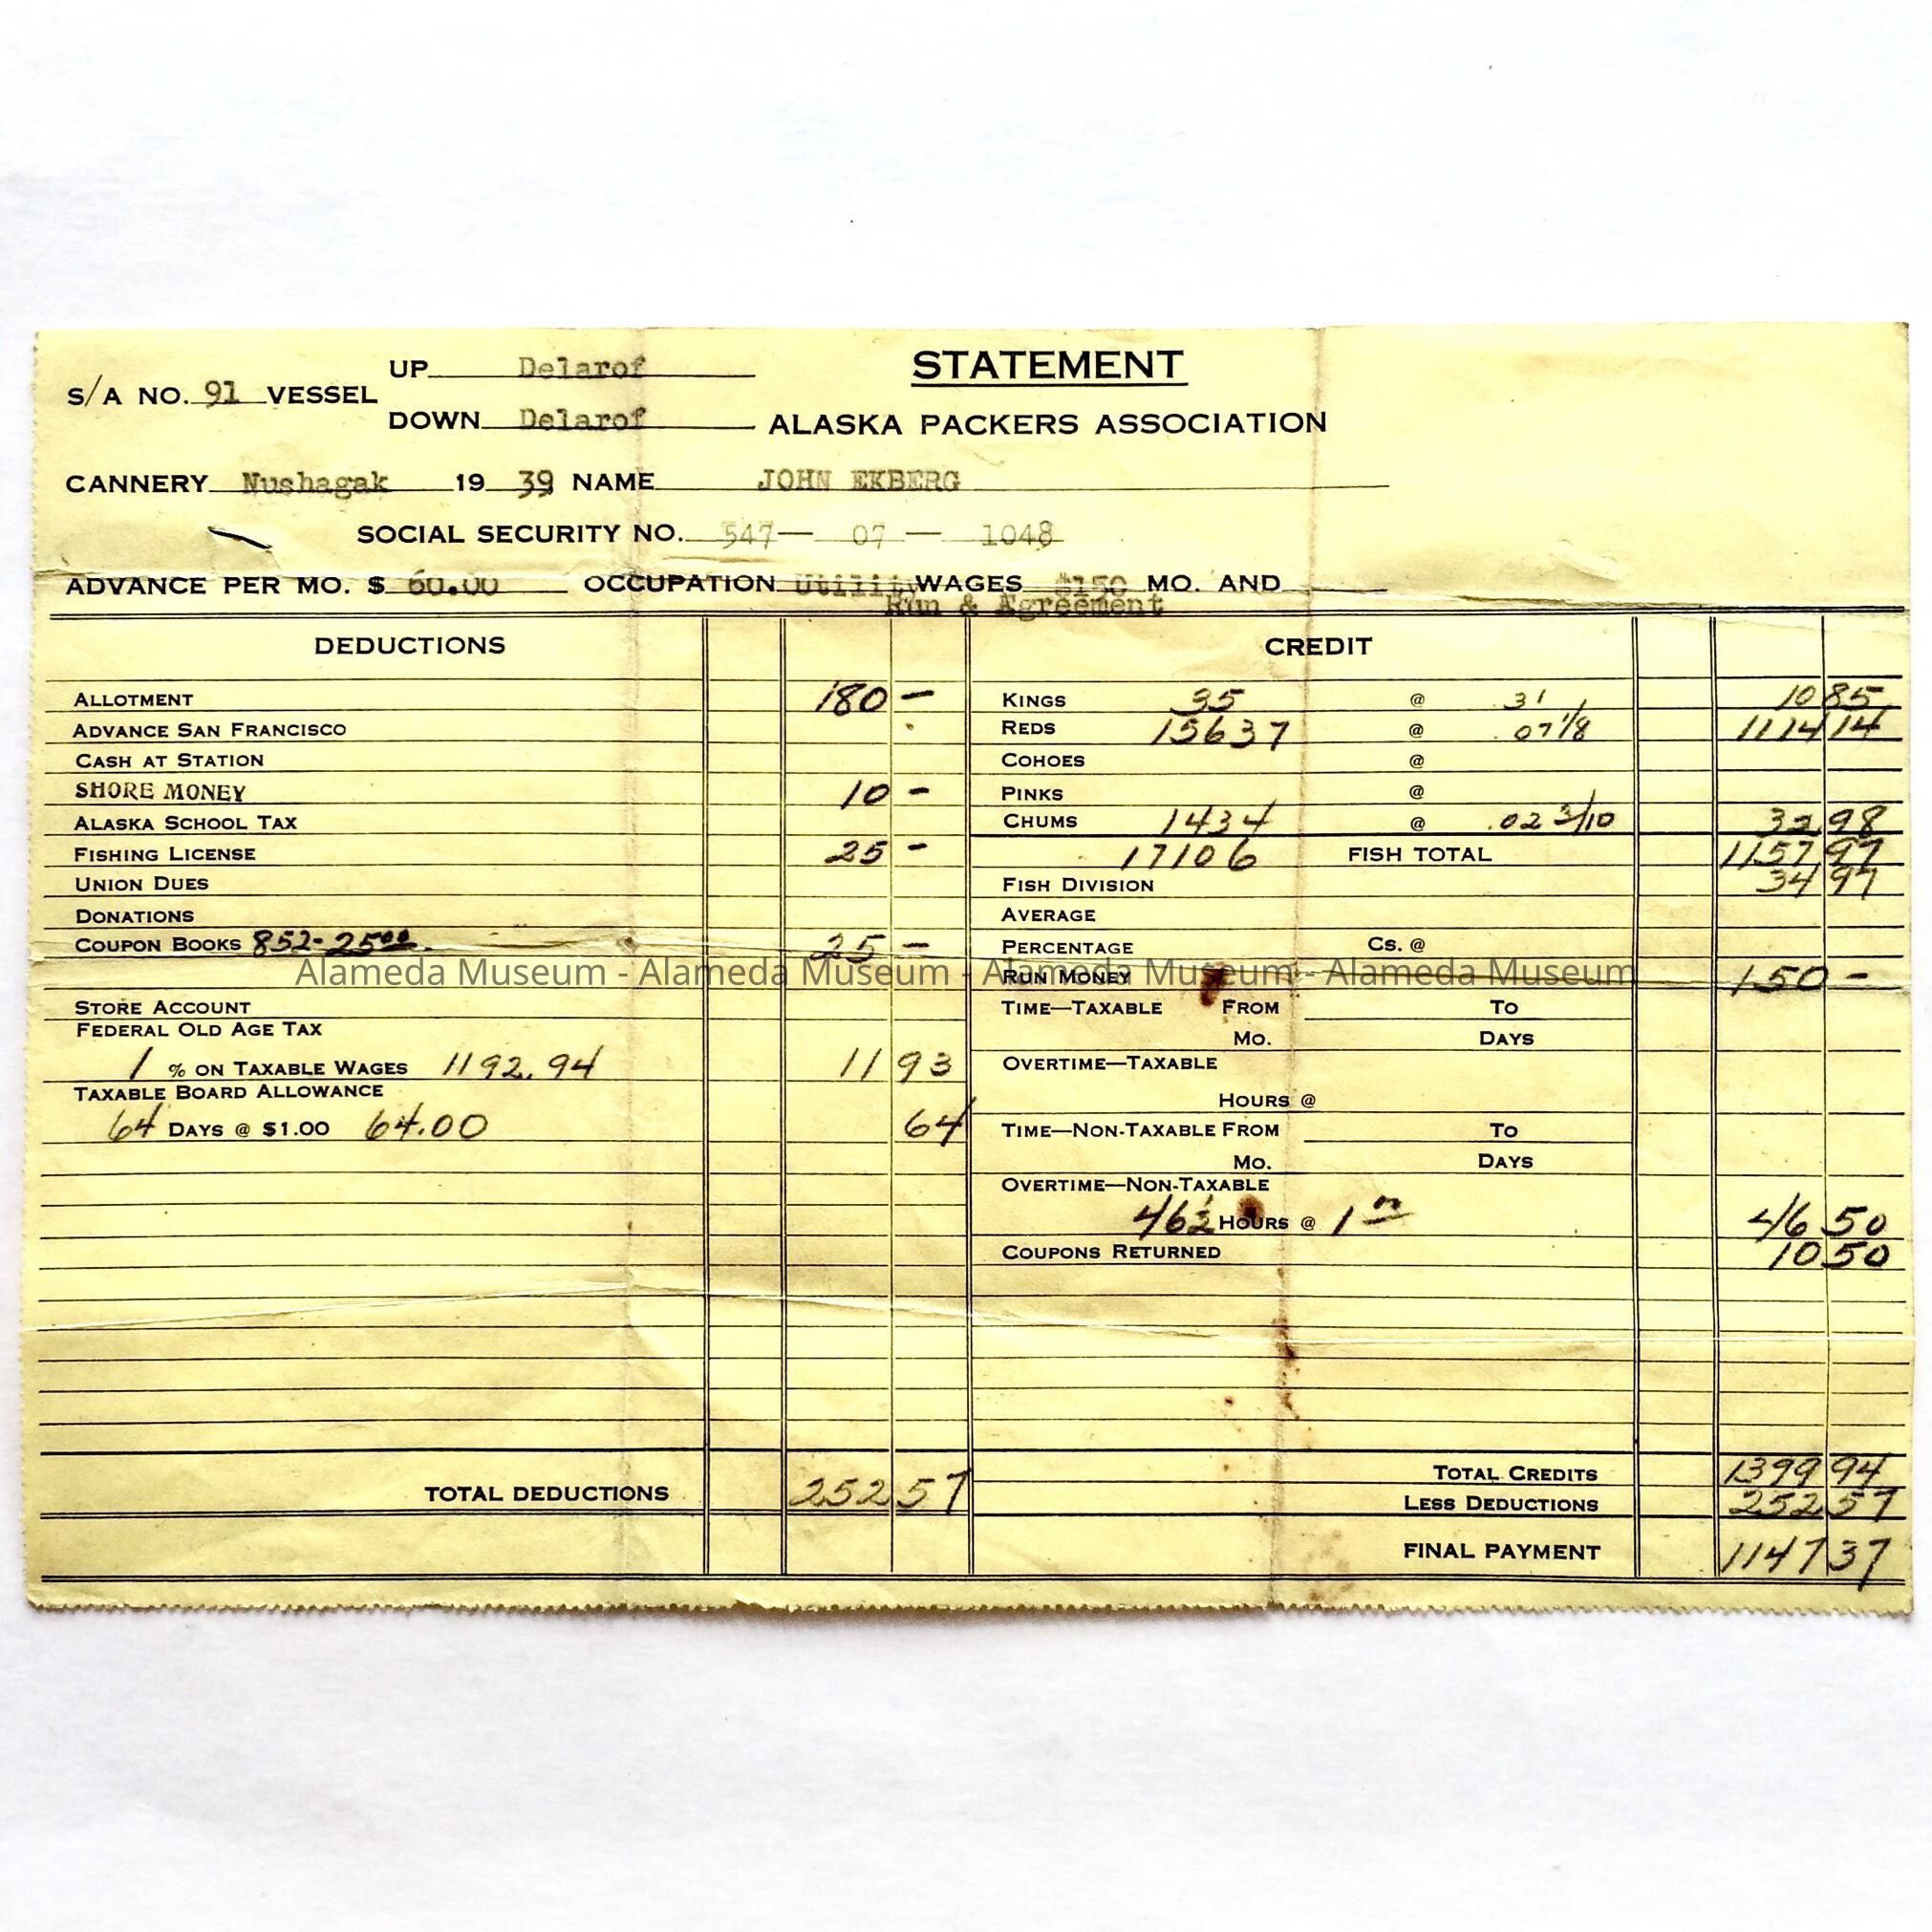 UP Delarof STATEMENT
S/A NO. 91 VESSEL
DOWN Delarof ALASKA PACKERS ASSOCIATION
CANNERY Nushagak 19 39 NAME JOHN EKBERG
SOCIAL SECURITY NO. 547— 07 — 1048
ADVANCE PER MO. $ 60.00 OCCUPATION Utility WAGES $150 MO. AND
Run & Agreement
DEDUCTIONS
ALLOTMENT 180 –
ADVANCE SAN FRANCISCO
CASH AT STATION
SHORE MONEY 10 –
ALASKA SCHOOL TAX
FISHING LICENSE 25 –
UNION DUES
DONATIONS
COUPON BOOKS 852- 25.00 25 –
STORE ACCOUNT
FEDERAL OLD AGE TAX
1 % ON TAXABLE WAGES 1192.94 11 93
TAXABLE BOARD ALLOWANCE
64 DAYS @ $1.00 64.00 64
TOTAL DEDUCTIONS 252 57
CREDIT
KINGS 35 @ .31 10 85
REDS 15637 @ .07 1/8 1114 14
COHOES @
PINKS @
CHUMS 1434 @ .02 3/10 32 98
17106 FISH TOTAL 1157 97
FISH DIVISION 34 97
AVERAGE
PERCENTAGE CS. @
RUN MONEY 150 –
TIME—TAXABLE FROM TO
MO. DAYS
OVERTIME—TAXABLE
HOURS @
TIME—NON-TAXABLE FROM TO
MO. DAYS
OVERTIME—NON-TAXABLE
46½ HOURS @ 1 46 50
COUPONS RETURNED 10 50
TOTAL CREDITS 1399 94
LESS DEDUCTIONS 252 57
FINAL PAYMENT 1147 37
Alameda Museum - Alameda Museum - Alameda Museum - Alameda Museum